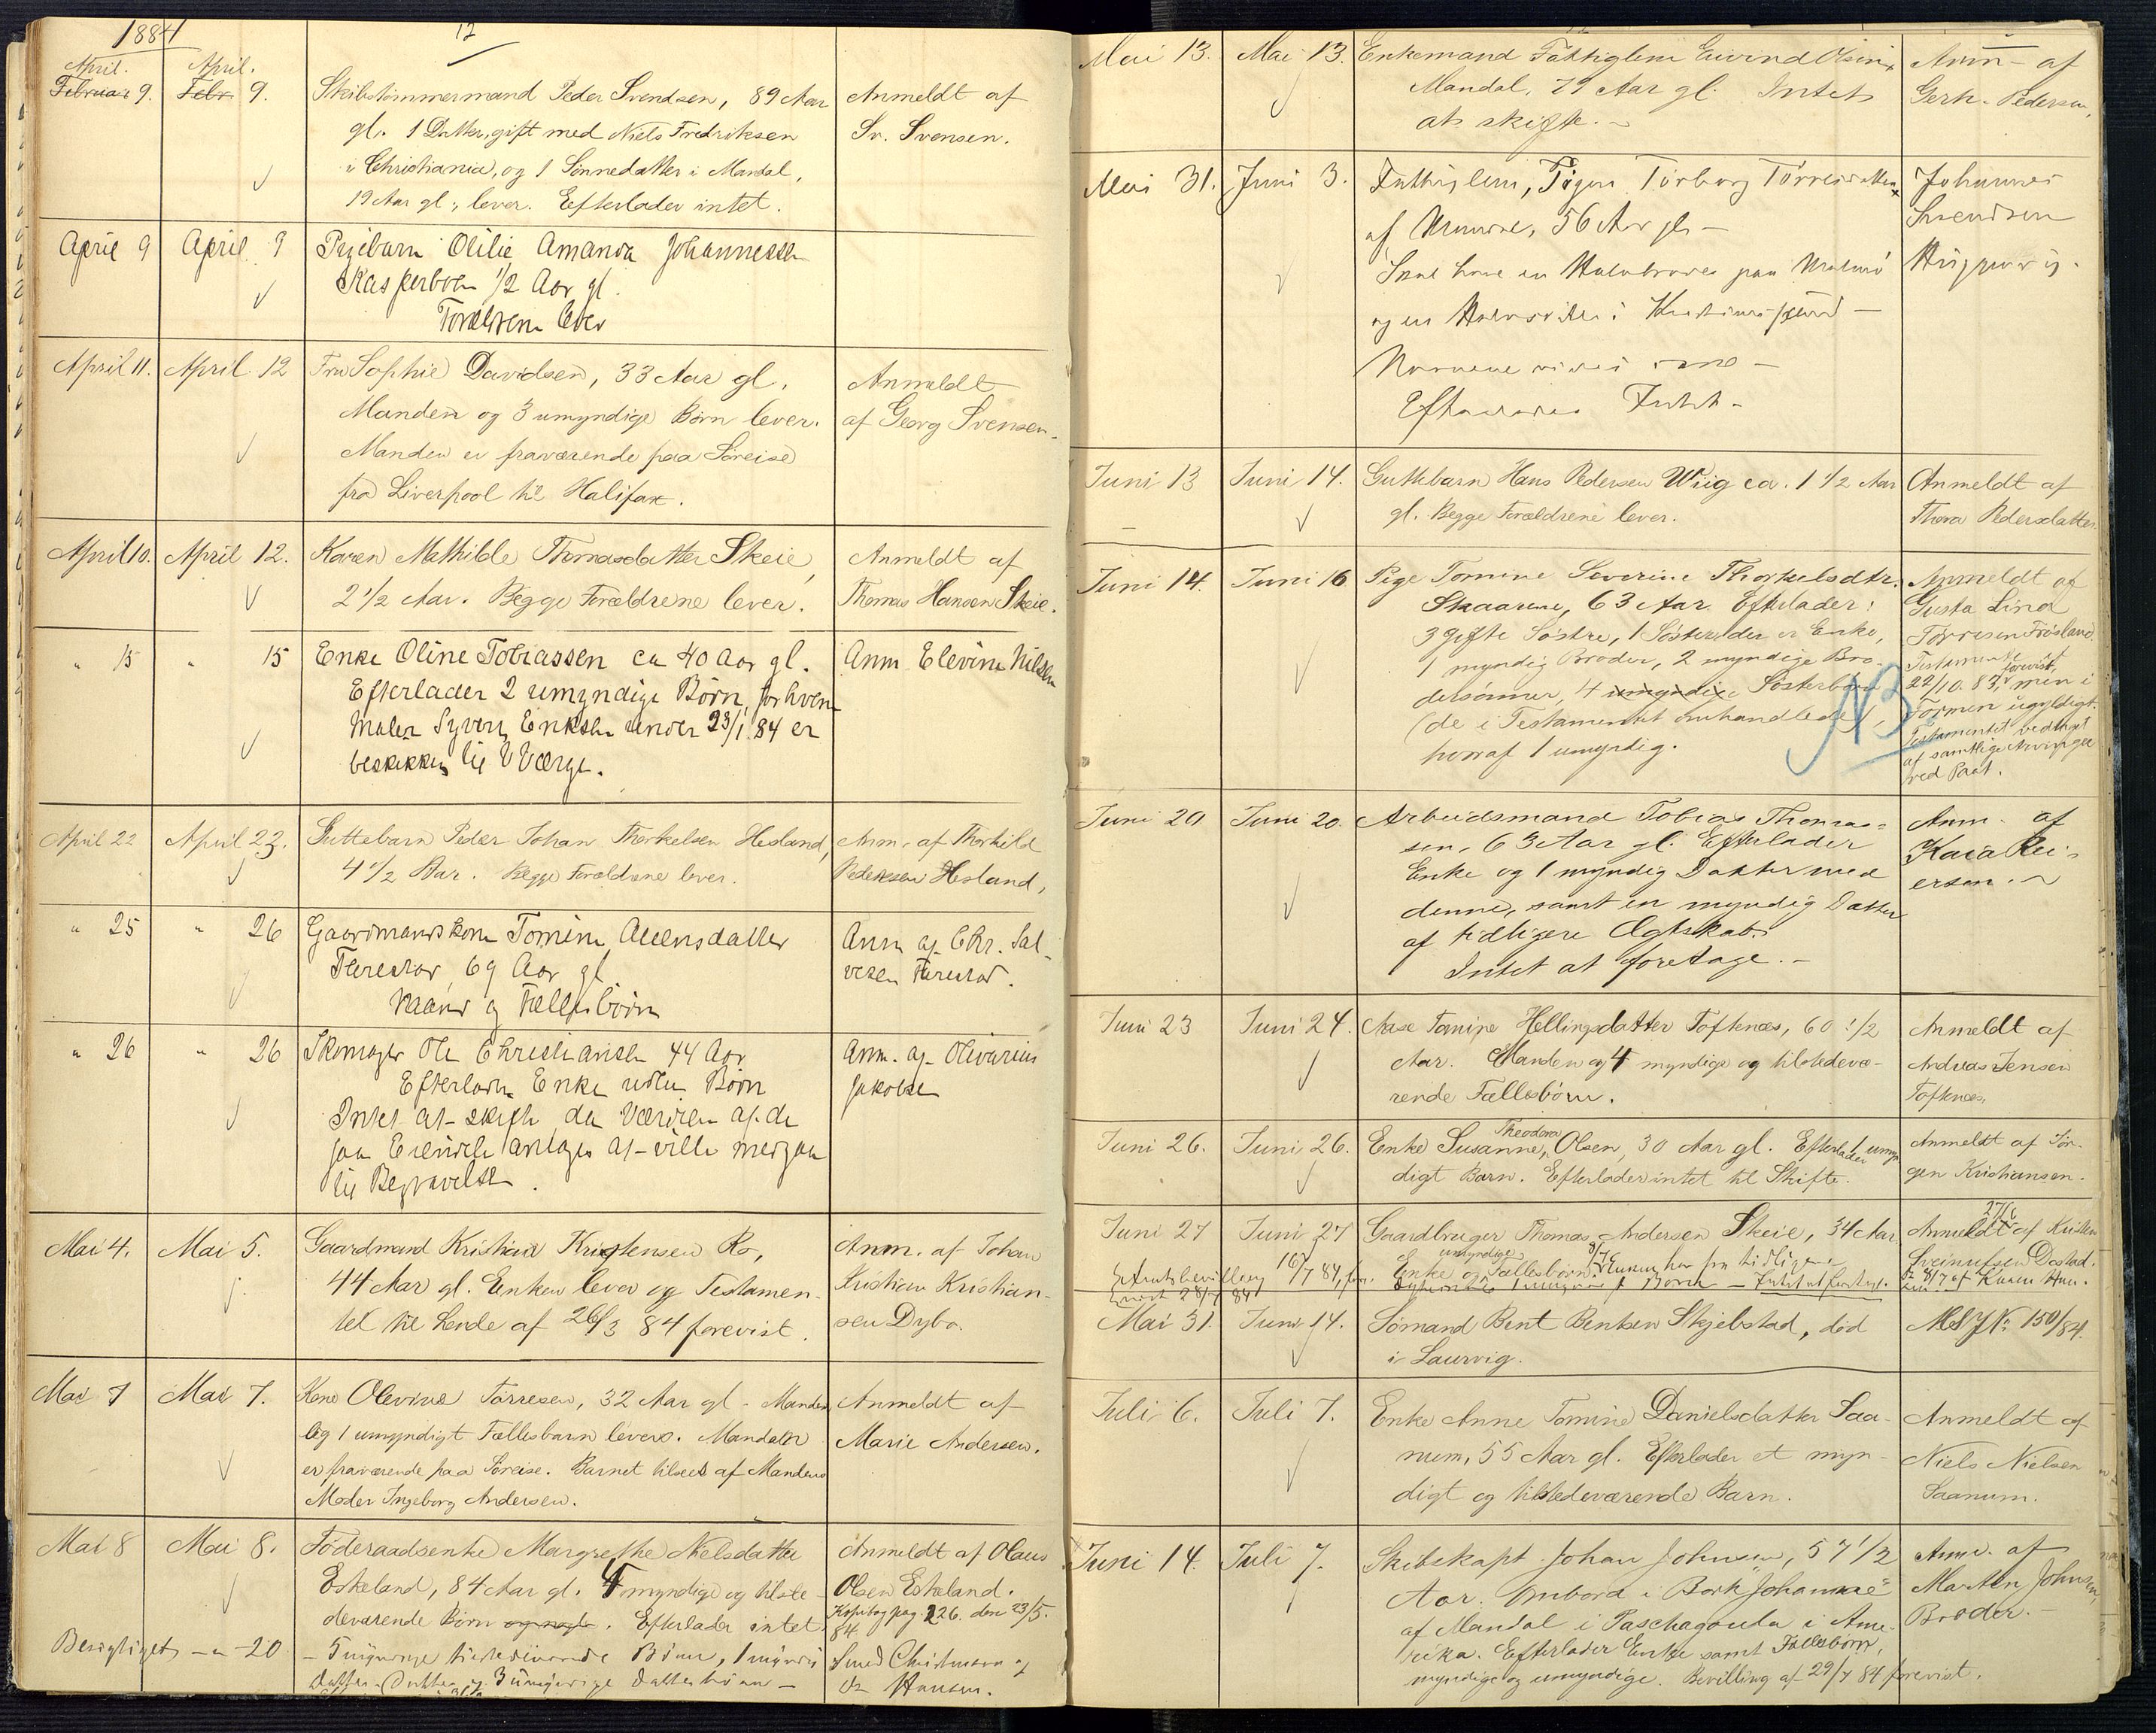 1884
12
April. April.
Februar 9. Febr. 9. Skibstömmermand Peder Svendsen, 89 Aar Anmeldt af
gl. 1 Datter, gift med Niels Fredriksen Sv. Svensen.
i Christiania, og 1 Sönnedatter i Mandal,
19 Aar gl., lever. Efterlader intet.
April 9 April 9 Pigebarn Otilie Amanda Johannessen
Kasperboen 1/2 Aar gl.
Forældrene lever
April 11. April 12 Fru Sophie Davidsen, 33 Aar gl. Anmeldt
Manden og 3 umyndige Børn lever. af Georg Svensen.
Manden er fraværende paa Söreise
fra Liverpool til Halifax.
April 10. April 12. Karen Mathilde Thomasdatter Skeie, Anmeldt af
2 1/2 Aar. Begge Forældrene lever. Thomas Hansen Skeie.
" 15 " 15 Enke Oline Tobiassen ca 40 Aar gl. Anm Elevine Nilsen
Efterlader 2 umyndige Børn, for hvem
Maler Syvert Eriksen under 23/1 84 er
beskikket til Værge.
April 22 April 23. Guttebarn Peder Johan Therkelsen Hesland, Anm. af Thorkild
4 1/2 Aar. Begge Forældrene lever. Pedersen Hesland,
" 25 " 26 Gaardmandskone Tomine Allensdatter Anm af Chr. Sal-
69 Aar gl vesen
Mand og Fællesbörn
" 26 " 26 Skomager Ole Christiansen 44 Aar Anm. af Olivarius
Efterlader Enke uden Børn Jakobsen
Intet at skifte da Værdien af de
paa Eiendele antages at ville medgaa
til Begravelsen.
Mai 4. Mai 5. Gaardmand Kristian Kristensen Ro, Anm. af Johan
44 Aar gl. Enken lever og Testamen- Kristian Kristian-
tet til hende af 26/3 84 forevist. sen Dybo.
Mai 7 Mai 7. Kone Olevine Tørresen, 32 Aar gl - Manden Anmeldt af
og 1 umyndigt Fællesbarn lever. Manden Marie Andersen.
er fraværende paa Söreise. Barnet tilsees af Mandens
Moder Ingeborg Andersen.
Mai 8 Mai 8. Föderaadsenke Margrethe Nielsdatter Anmeldt af Olaus
Eskeland, 84 Aar gl. 4 myndige og tilste- Olsen Eskeland.
deværende Børn og nogle. Efterlader intet Kopibog pag. 226. den 23/5.
84
Besigtiget — " — 20 Børn, 1 Smed Christensen og
Hansen.
Mai 13. Mai 13. Enkemand Fattiglem Eivind Olsen Anm- af
Mandal, 79 Aar gl. Intet Gerh. Pedersen,
at skifte. -
Mai 31. Juni 3. Fattiglem, Pigen Torborg Törresdatter Johannes
af Mandal, 56 Aar gl - Svendsen
Skal have en Halvbroder paa Malmö
og en Halvsöster i Kristiansand -
Navnene vides ikke -
Efterlader Intet -
Juni 13 Juni 14. Guttebarn Hans Pedersen Wiig ca. 1 1/2 Aar Anmeldt af
gl. Begge Forældrene lever. Thora Pedersdatter
Juni 14. Juni 16 Pige Tomine Severine Thorkelsdtr. Anmeldt af
Skaarene, 63 Aar. Efterlader: Gusta Lind
3 gifte Söstre, 1 Söster der er Enke, Törresen Frösland
1 myndig Broder, 2 myndige Bro- Testamente af
dersönner, 4 umyndige Söstersbörn 22/10. 83, forevist, men i
(de i Testamentet omhandlede), Formen ugyldigt.
hvoraf 1 umyndig. Testamentet vedtaget
af samtlige Arvinger
ved Paat.
NB
Juni 20 Juni 20. Arbeidsmand Tobias Thomas- Anm. af
sen, 63 Aar gl. Efterlader Kaia Rei-
Enke og 1 myndig Datter med ersen. -
denne, samt en myndig Datter
af tidligere Ægtskab.
Intet at foretage. -
Juni 23 Juni 24. Aase Tomine Hellingsdatter Toftenæs, 60 1/2 Anmeldt af
Aar. Manden og 4 myndige og tilstedevæ- Andreas Jensen
rende Fællesbörn. Toftenæs.
Juni 26. Juni 26. Enke Susanne Theodora Olsen, 30 Aar gl. Efterlader 1 umyn Anmeldt af Jör-
digt Barn. Efterlader intet til Skifte. gen Kristiansen.
Juni 27 Juni 27 Gaardbruger Thomas Andersen Skeie, 34 Aar. Anmeldt 27/6 af
Enke og umyndige Fællesbörn.
Amtsbevilling 16/7 84, for-
evist 28/7 84
Mai 31. Juni 14. Sömand Bent Bentsen Skjebstad, död MSJ No 150/84.
i Laurvig.
Juli 6. Juli 7. Enke Anne Tomine Danielsdatter Saa- Anmeldt af
num, 55 Aar gl. Efterlader et myn- Niels Nielsen
digt og tilstedeværende Barn. Saanum.
Juni 14. Juli 7. Skibskapt. Johan Johnsen, 57 1/2 Anm. af
Aar. Ombord i Bark "Johanne" Marten Johnsen,
af Mandal i Paschagoula i Ame- Broder. -
rika. Efterlader Enke samt Fællesbörn,
myndige og umyndige. Bevilling af 29/7 84 forevist.